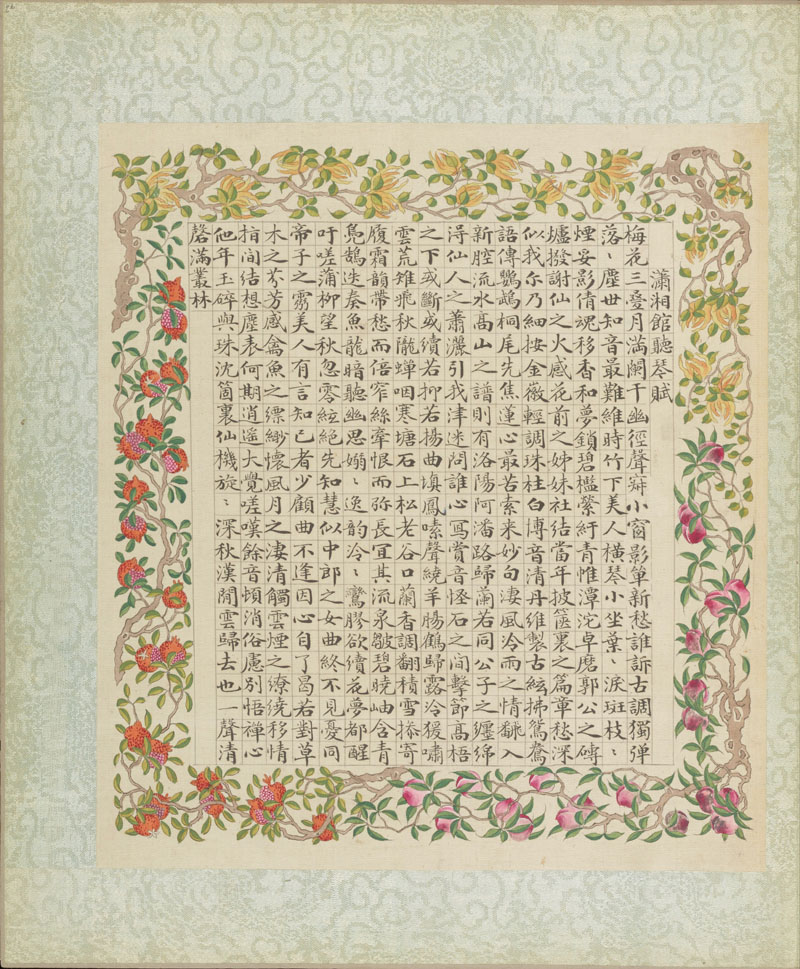 瀟湘館聽琴賦
梅花三疊月滿闌干幽徑聲小窗影單新愁誰訴古調獨彈
落〻塵世知音最難維時竹下美人橫琴小坐葉〻淚斑枝〻
煙妥影倩魂移香和夢鎖碧檻縈紆青帷沱卓磨郭公之磚
爐撥謝仙之火感花前之姊妹社結當年披篋裏之篇章愁深
似我尓乃細按金徽輕調珠柱白博音清丹維製古絃拂鴛鴦
語傳鸚鵡桐尾先焦蓮心最苦索来妙句淒風冷雨之情翻入
新腔流水高山之譜則有洛陽阿潘路歸蘭若同公子之纏綿
淂仙人之蕭灑引我津迷問誰心寫賞音怪石之間擊節高梧
之下或斷或續若抑若揚曲塡鳳嗉聲繞羊腸鶴歸露冷猨嘯
雲荒雉飛秋隴蟬咽寒塘石上松老谷口蘭香調翻積雪寄
履霜韻帶愁而倍窄絲牽恨而弥長宜其流泉皺碧曉岫含青
鳧鵠迭奏魚龍暗聽幽思嫋〻逸韵泠〻鸞膠欲續花夢都醒
吁嗟蒲柳望秋忽零絃絕先知慧似中郎之女曲終不見憂同
帝子之靈美人有言知己者少顧曲不逢因心自了曷若對草
木之芬芳感禽魚之縹緲懷風月之淒清觸雲煙之繚繞移情
指間結想塵表何期逍遙大覺嗟嘆餘音頓消俗慮別悟禪心
他年玉碎與珠沈箇裏仙機旋〻深秋漢閒雲歸去也一聲清
磬滿叢林